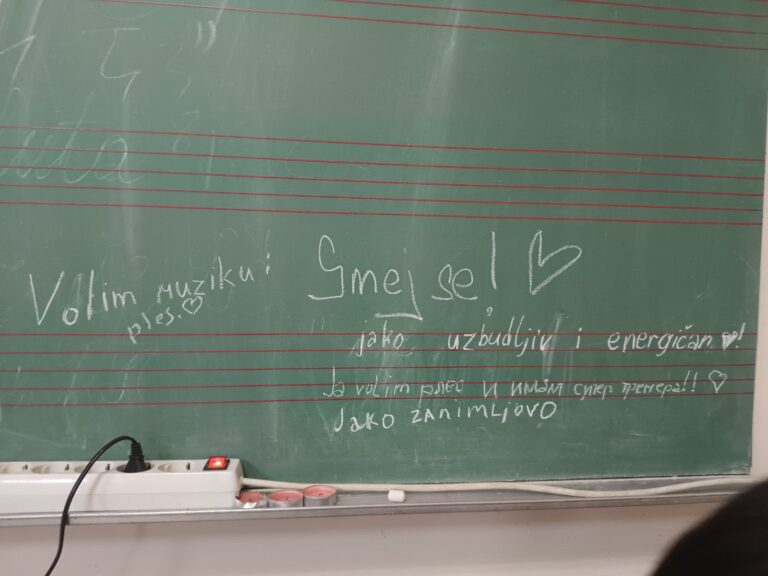 Volim muziku i
ples. ♡
Smej se! ♡
jako uzbudljiv i energičan ♥!
Ja volim ples и имам супер тренера!! ♡
Jako zanimljovo